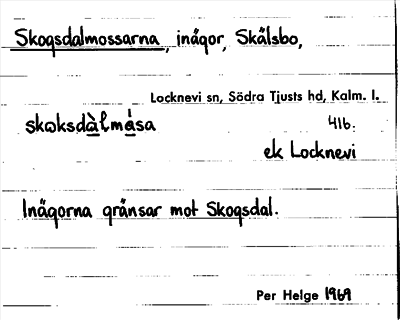 Skogsdalmossarna, inägor, Skälsbo,
Locknevi sn, Södra Tjusts hd, Kalm. l.
skɷksdàl̵mása 416.
ek Locknevi
Inägorna gränsar mot Skogsdal.
Per Helge 1969